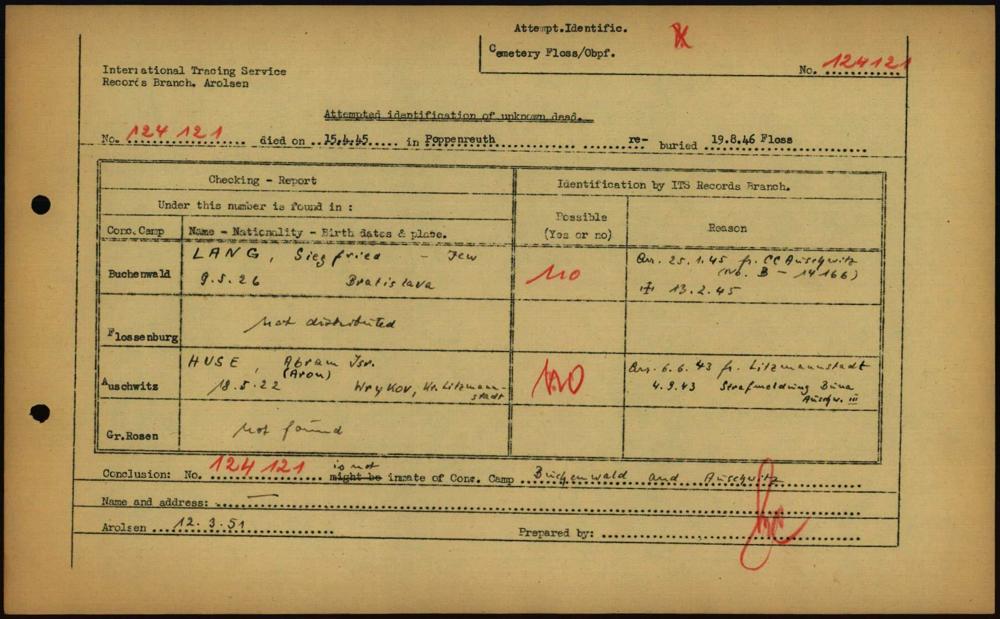 Attempt.Identific.
Cemetery Floss/Obpf.
No. 124121
International Tracing Service
Records Branch. Arolsen
Attempted identification of unknown dead.
No. 124 121 died on 15.4.45 in Poppenreuth re- buried 19.8.46 Floss
Checking - Report
Identification by ITS Records Branch.
Under this number is found in :
Conc. Camp
Name - Nationality - Birth dates & place.
Possible
(Yes or no)
Reason
Buchenwald
LANG, Siegfried - Jew
9.5.26 Bratislava
no
Arr. 25.1.45 fr. CC Auschwitz
(No. B - 14166)
13.2.45
Flossenburg
Not distributed
Auschwitz
HUSE, Abram Isr.
(Aron)
18.5.22 Wrykov, Kr. Litzmann-
stadt
no
Arr. 6.6.43 fr. Litzmannstadt
4.9.43 Strafmeldung Buna
Auschw. III
Gr.Rosen
Not found
Conclusion: No. 124 121 is not might be inmate of Conc. Camp Buchenwald and Auschwitz
Name and address: —
Arolsen 12.3.51
Prepared by: